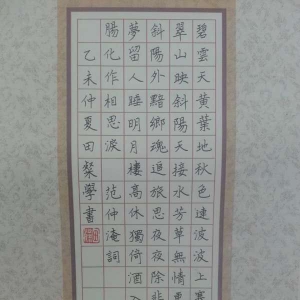 碧雲天黃葉地秋色連波波上寒
翠山映斜陽天接水芳草無情更
斜陽外黯鄉魂追旅思夜夜除非
夢留人睡明月樓高休獨倚酒入
腸化作相思淚 范仲淹詞
乙未仲夏田粲學書